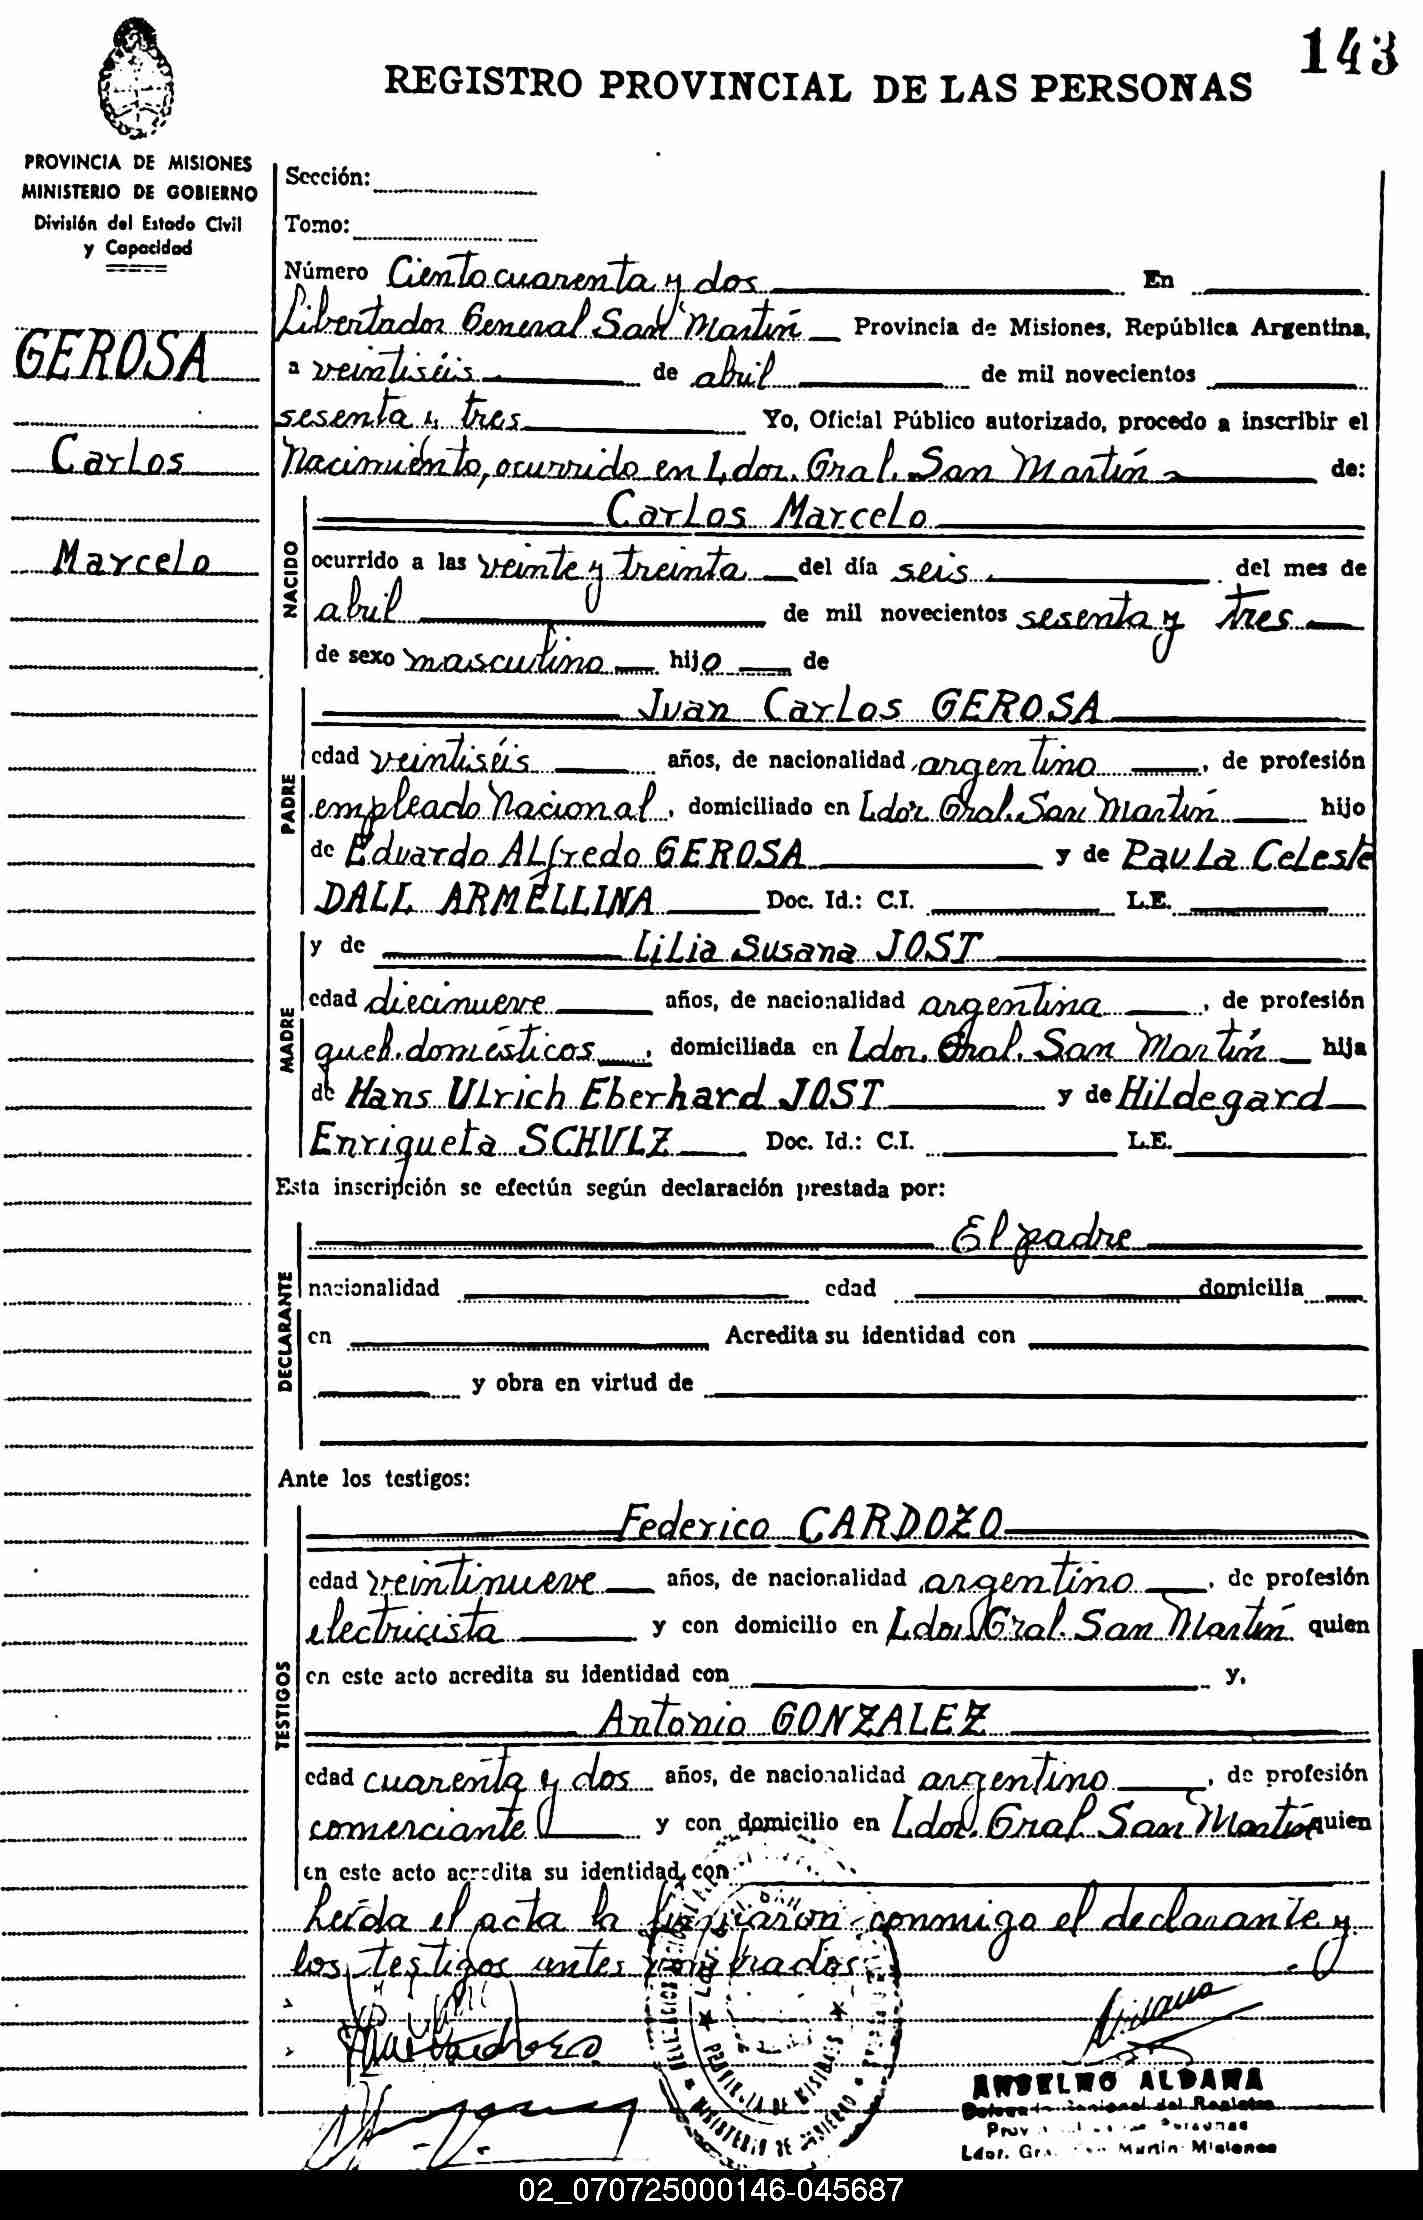 143
REGISTRO PROVINCIAL DE LAS PERSONAS
PROVINCIA DE MISIONES
MINISTERIO DE GOBIERNO
División del Estado Civil
y Capacidad
GEROSA
Carlos
Marcelo
Sección:
Tomo:
Número Ciento cuarenta y dos En
Libertador General San Martín Provincia de Misiones, República Argentina,
a veintiséis de abril de mil novecientos
sesenta y tres Yo, Oficial Público autorizado, procedo a inscribir el
Nacimiento, ocurrido en Ldor. Gral. San Martín de:
NACIDO
Carlos Marcelo
ocurrido a las veinte y treinta del día seis del mes de
abril de mil novecientos sesenta y tres
de sexo masculino hijo de
PADRE
Juan Carlos GEROSA
edad veintiséis años, de nacionalidad argentino, de profesión
empleado Nacional, domiciliado en Ldor. Gral. San Martín hijo
de Eduardo Alfredo GEROSA y de Paula Celeste
DALL ARMELLINA Doc. Id.: C.I. L.E.
MADRE
y de Lilia Susana JOST
edad diecinueve años, de nacionalidad argentina, de profesión
queh. domésticos, domiciliada en Ldor. Gral. San Martín hija
de Hans Ulrich Eberhard JOST y de Hildegard
Enriqueta SCHULZ Doc. Id.: C.I. L.E.
Esta inscripción se efectúa según declaración prestada por:
DECLARANTE
El padre
nacionalidad edad domicilia
en Acredita su identidad con
y obra en virtud de
Ante los testigos:
TESTIGOS
Federico CARDOZO
edad veintinueve años, de nacionalidad argentino, de profesión
electricista y con domicilio en Ldor. Gral. San Martín quien
en este acto acredita su identidad con y,
Antonio GONZALEZ
edad cuarenta y dos años, de nacionalidad argentino, de profesión
comerciante y con domicilio en Ldor. Gral. San Martín quien
en este acto acredita su identidad con
Leída el acta la firmaron conmigo el declarante y
los testigos antes nombrados
PROVINCIA DE MISIONES
MINISTERIO DE GOBIERNO
ANSELMO ALDANA
Delegado del Registro
Ldor. Gral. San Martín Misiones
02_070725000146-045687